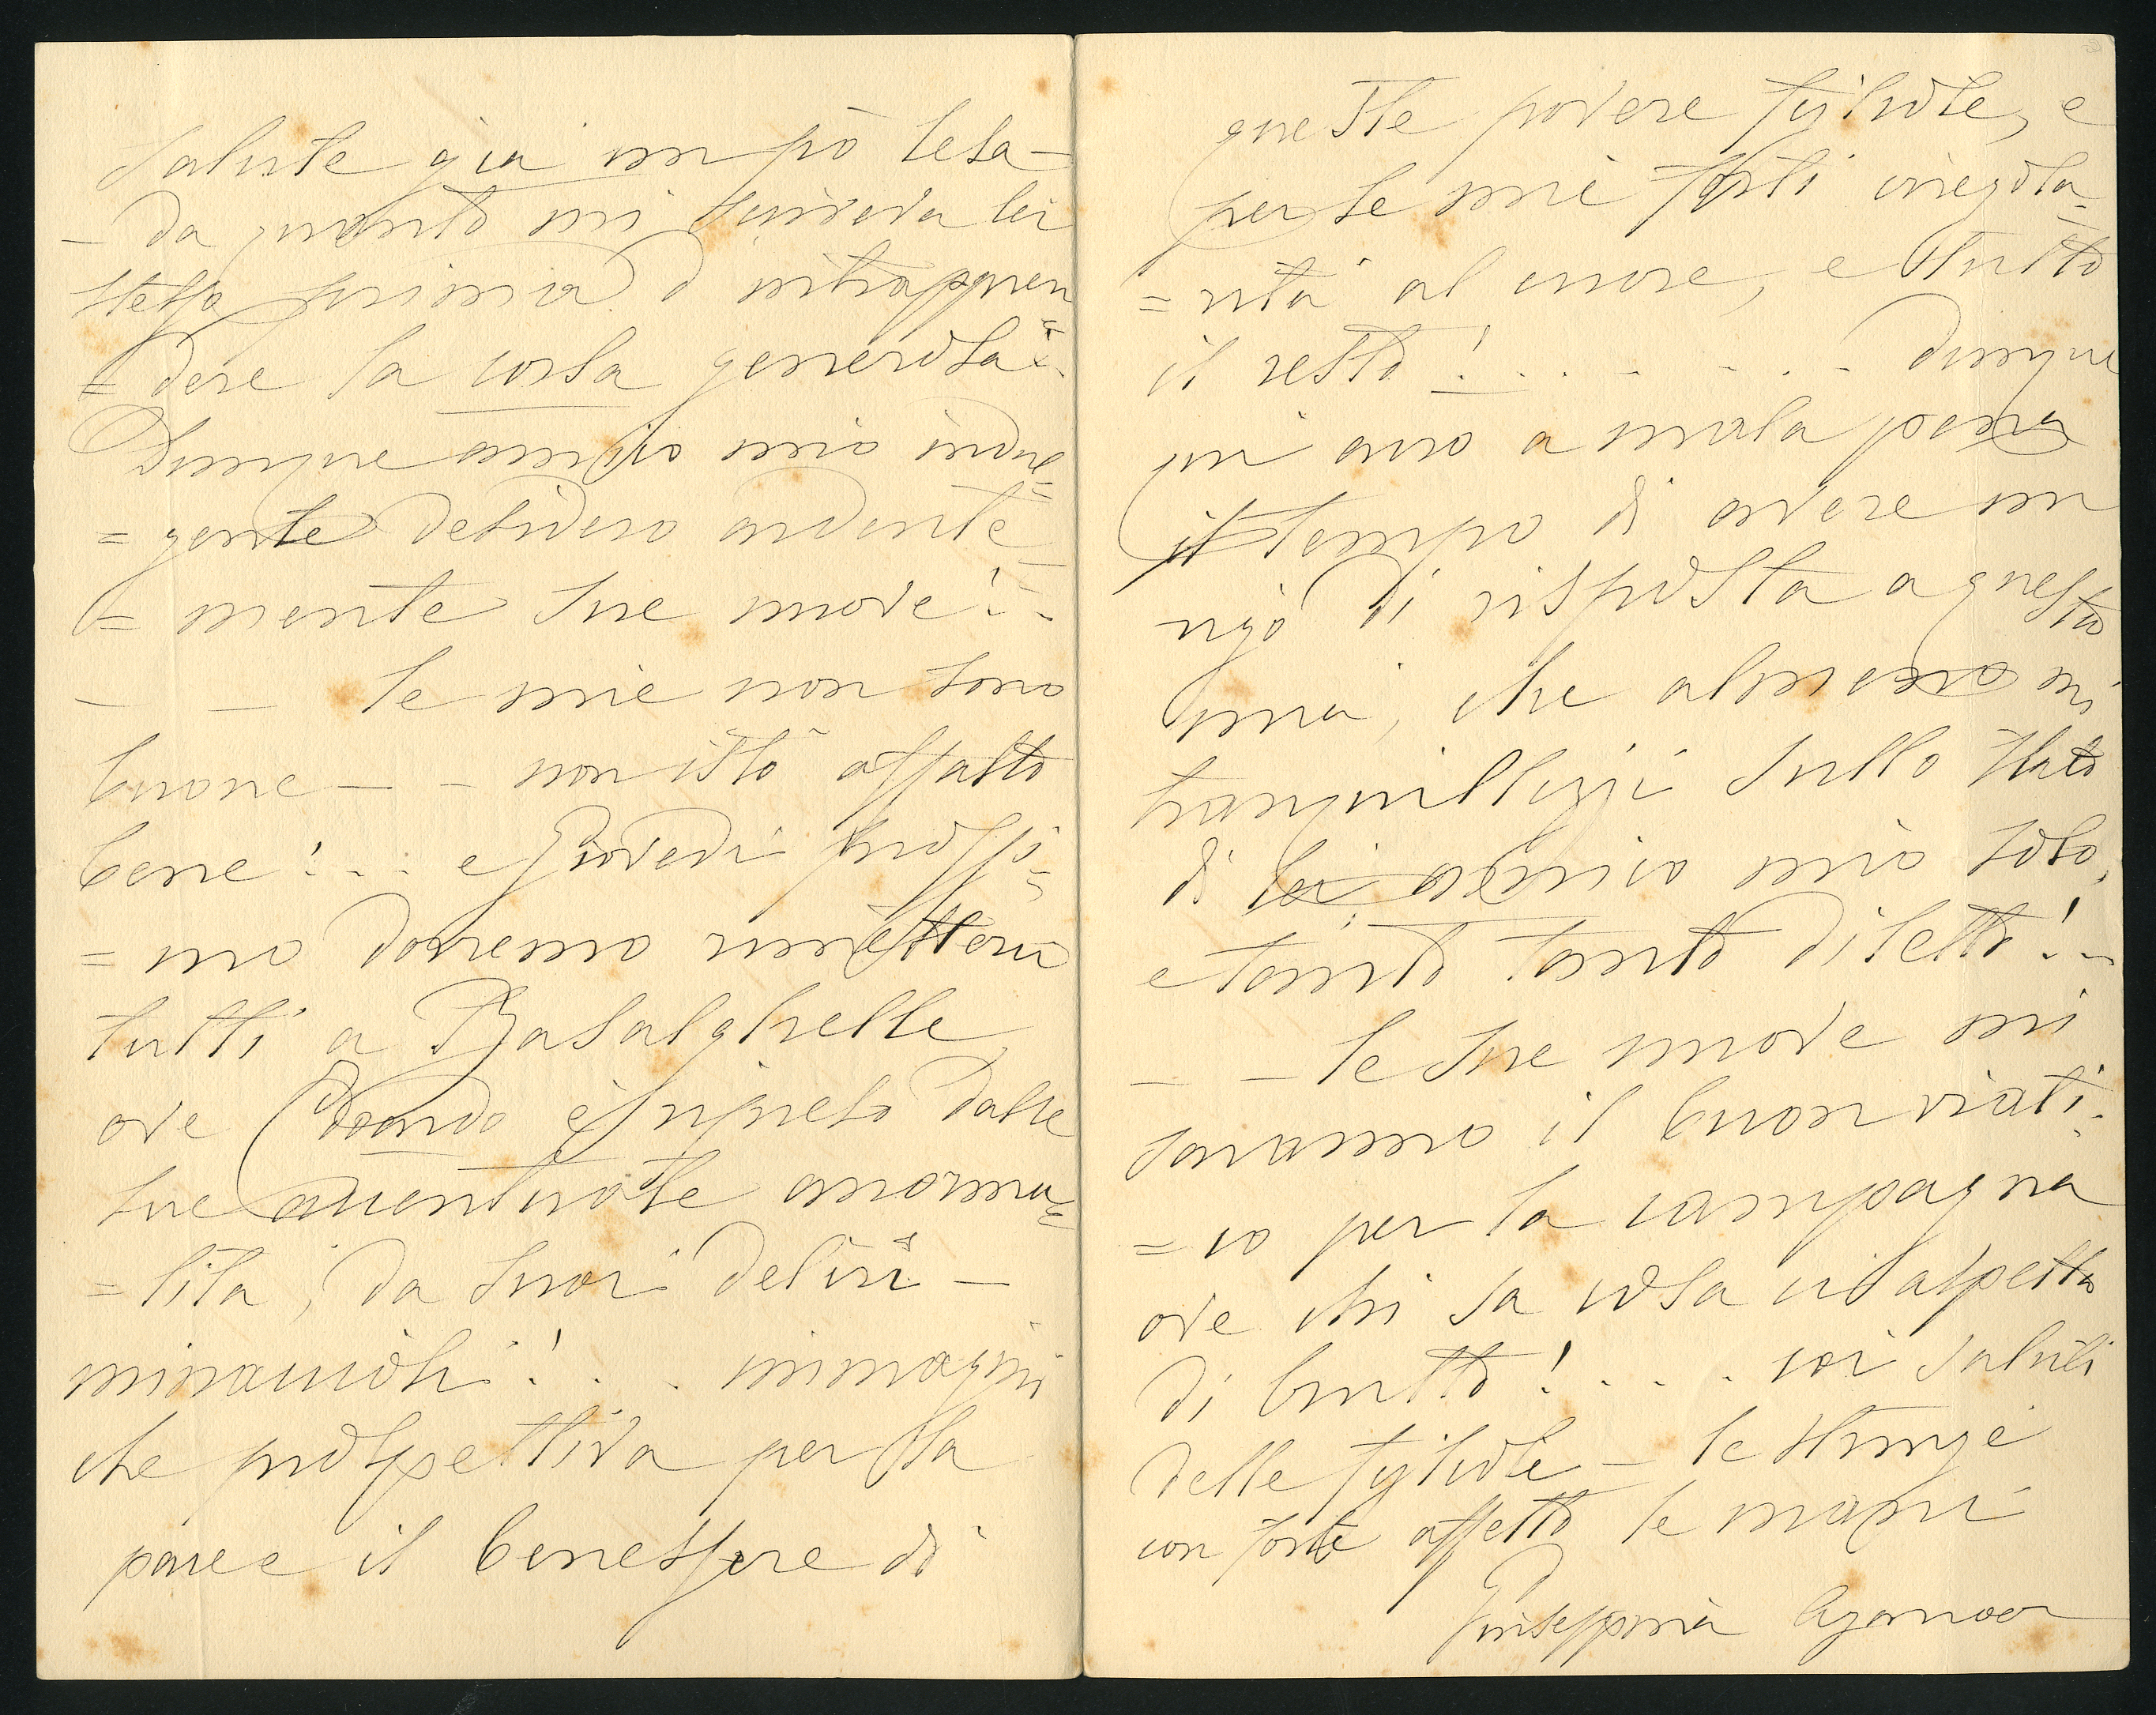 salute già un pò lesa —
— da quanto mi scriveva lei
stesso prima d'intrappren
= dere la corsa generosa!..
Dunque amico mio indul=
= gente desidero ardente
= mente sue nuove!..
— — le mie non sono
buone — - non istò affatto
bene!... e Giovedì prossi=
= mo dovremo rimetterci
tutti a Basalghelle
ove è
sue accentuate anorma=
= lità, da suoi deliri —
minacciosi!... immagini
che prospettiva per la
pace e il benessere di
queste povere figliole, e
per le mie forti irregola=
= rità al cuore, e tutto
il resto!...... Dunque
mi avrò a mala pena
il tempo di avere un
rigo di risposta a questa
mia, che almeno mi
tranquillizzi sullo stato
di lei amico mio solo,
e tanto tanto diletto!..
— — le sue nuove mi
saranno il buon viati=
= co per la campagna
ove chi sa cosa ci aspetta
di brutto!.... coi saluti
delle figliole — le stringe
con forte affetto le mani
Giuseppina Aganoor